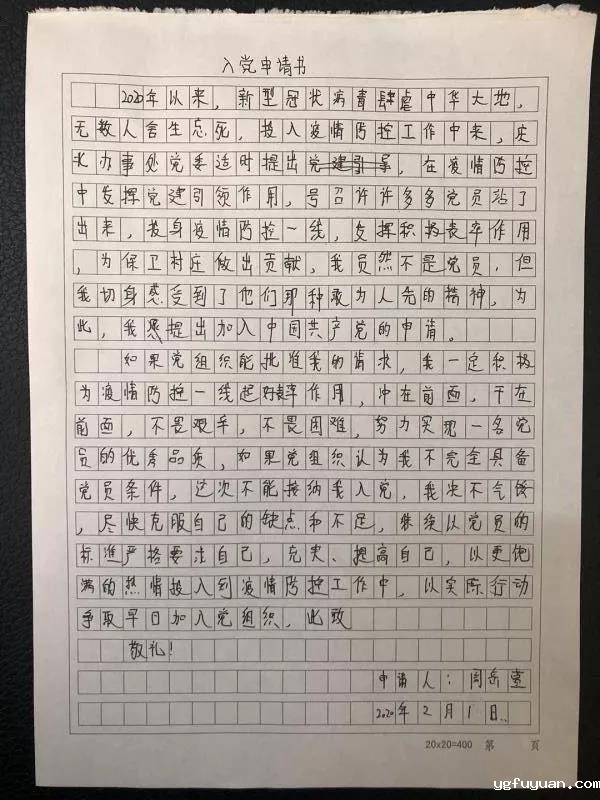 入党申请书
2020年以来，新型冠状病毒肆虐中华大地，
无数人舍生忘死，投入疫情防控工作中来，
办事处党委适时提出党建引导，在疫情防控
中发挥党建引领作用，号召许许多多党员站了
出来，投身疫情防控一线，发挥积极表率作用
，为保卫村庄做出贡献，我虽然不是党员，但
我切身感受到了他们那种敢为人先的精神，为
此，我愿提出加入中国共产党的申请。
如果党组织能批准我的请求，我一定积极
为疫情防控一线起好表率作用，冲在前面，干在
前面，不畏艰辛，不畏困难，努力实现一名党
员的优秀品质，如果党组织认为我不完全具备
党员条件，这次不能接纳我入党，我决不气馁
，尽快克服自己的缺点和不足，继续以党员的
标准严格要求自己，充实、提高自己，以更饱
满的热情投入到疫情防控工作中，以实际行动
争取早日加入党组织，此致
敬礼！
申请人：周岳
2020年2月1日
20x20=400 第 页
ygfuyuan.com